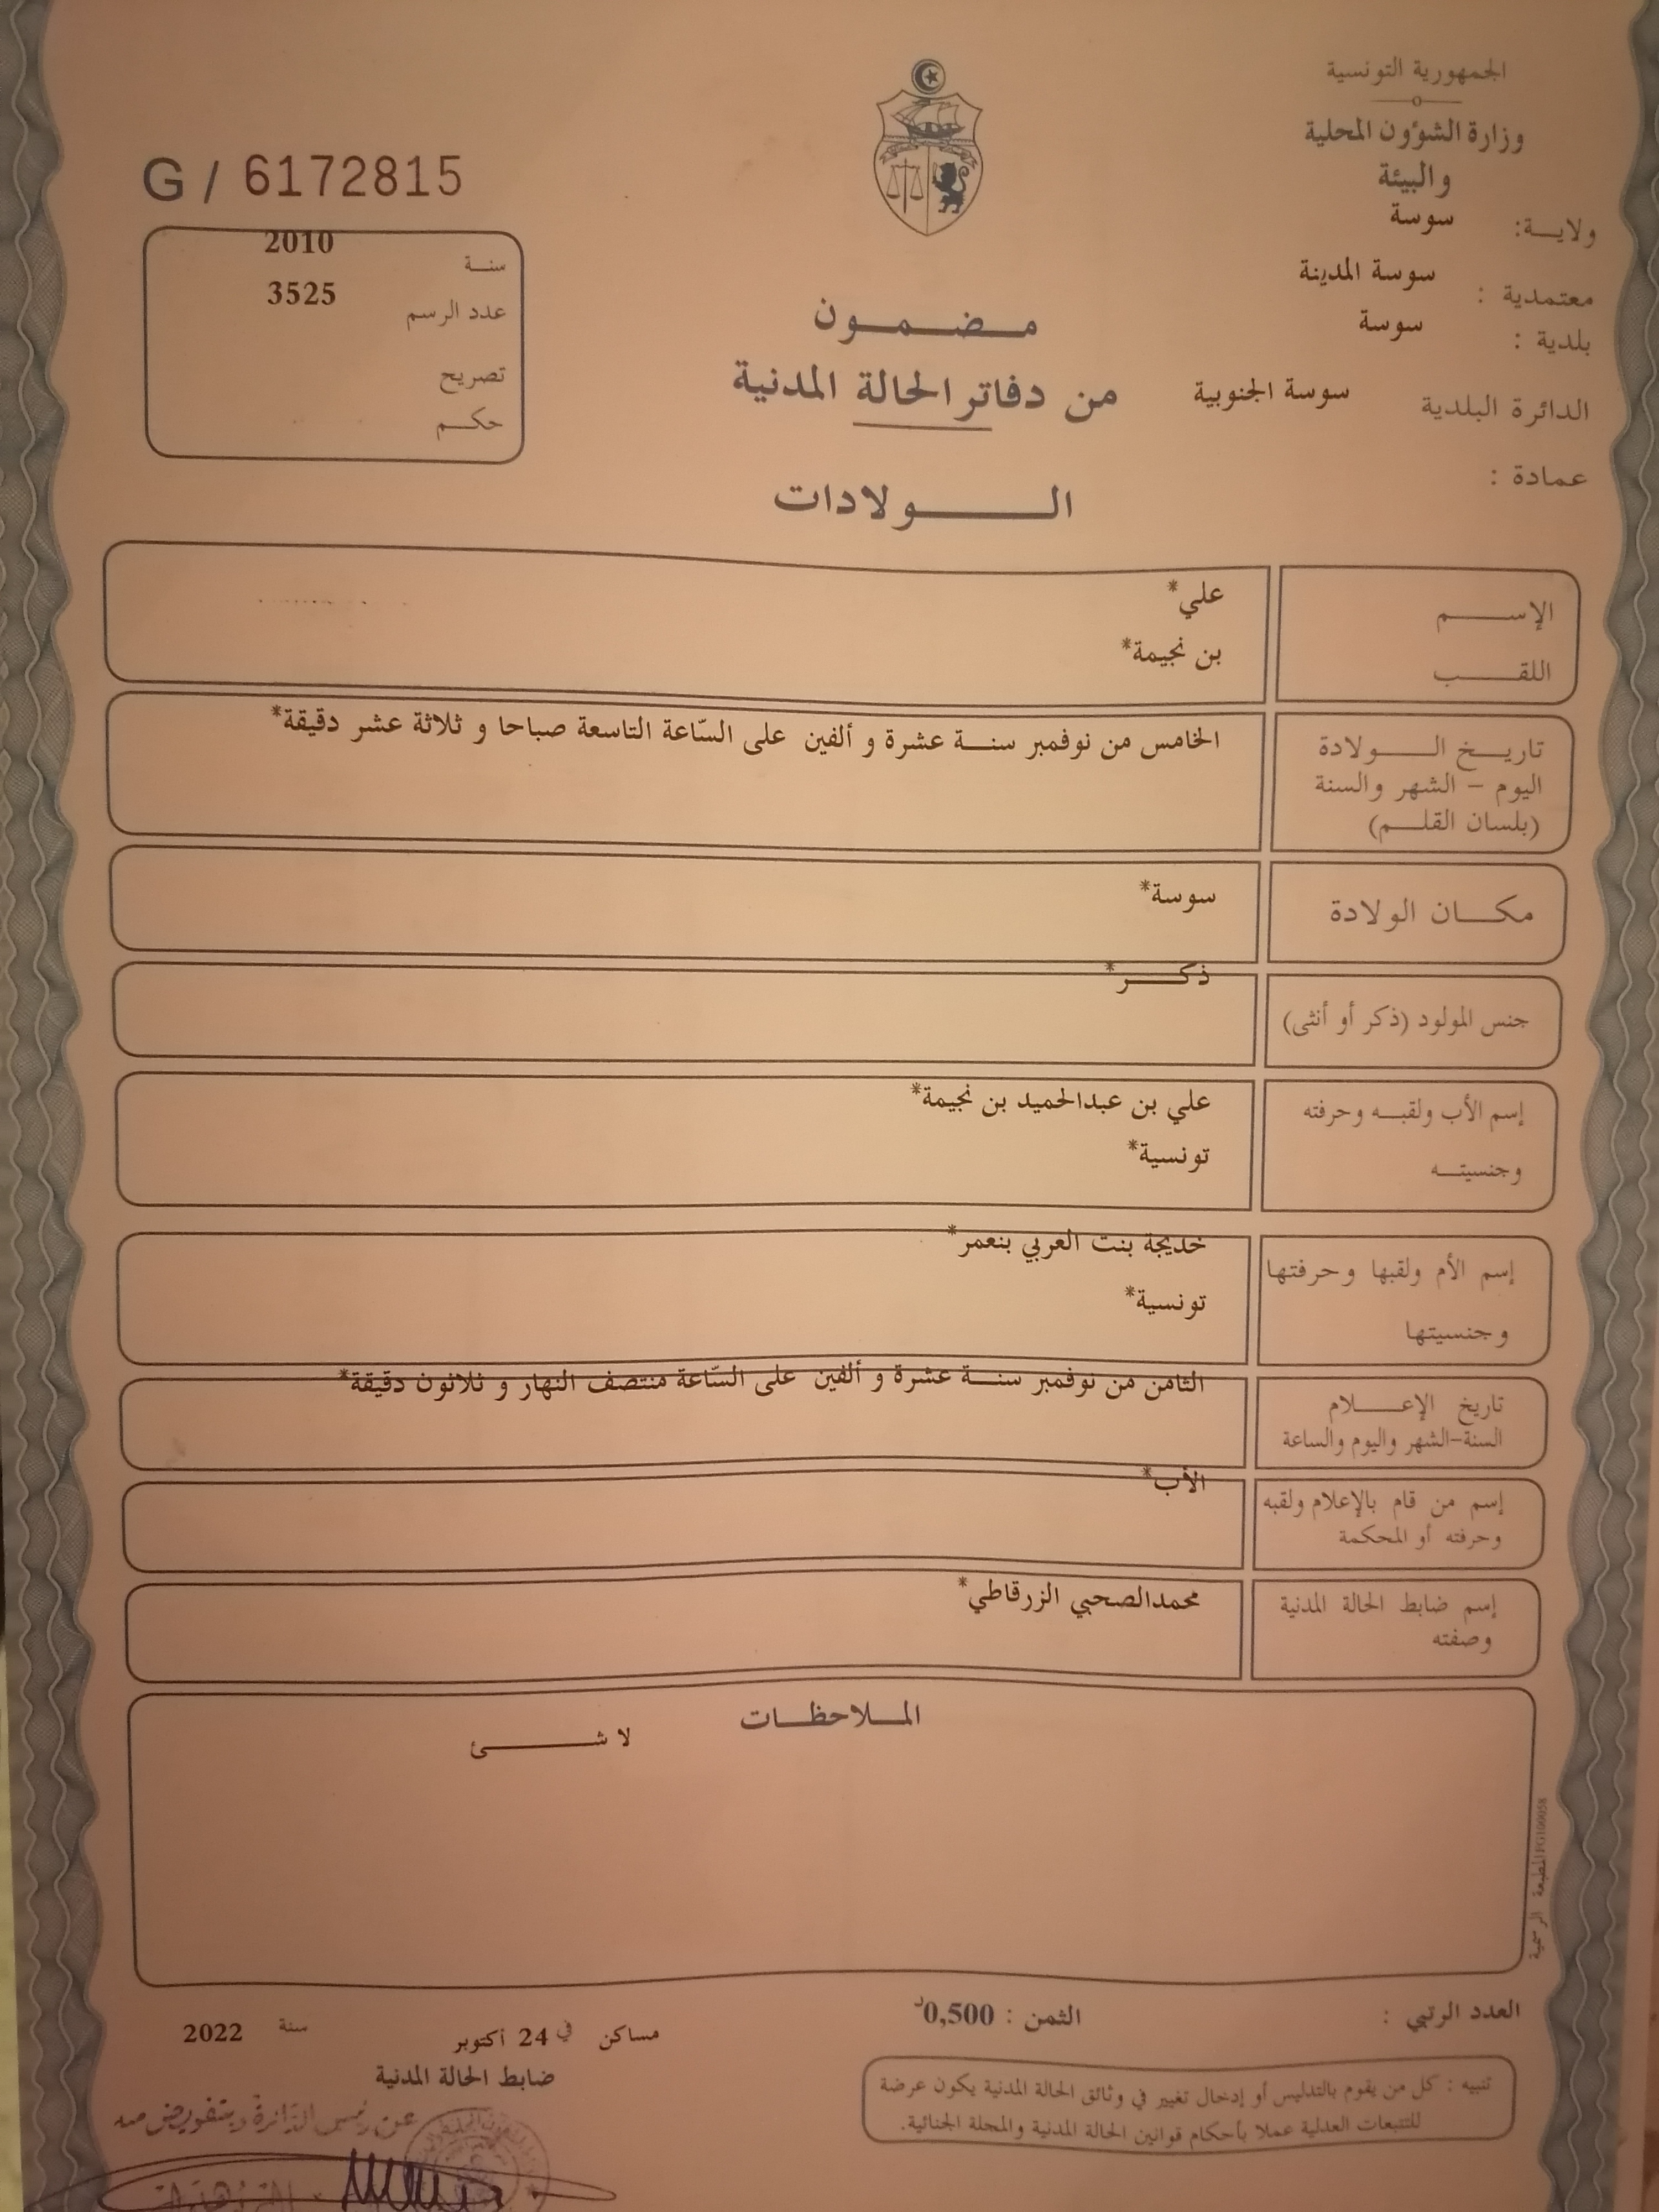 الجمهورية التونسية
وزارة الشؤون المحلية
والبيئة
ولايـــة: سوسة
معتمدية : سوسة المدينة
بلدية : سوسة
الدائرة البلدية سوسة الجنوبية
عمادة :
G / 6172815
سنــة 2010
عدد الرسم 3525
تصريح
حكـــم
مـــضـــمـــون
من دفاتر الحالة المدنية
الـــــولادات
الإســـــم علي*
اللقـــــب بن نجيمة*
تاريـــخ الـــــولادة
اليوم – الشهر والسنة
(بلسان القلـــم)
الخامس من نوفمبر سنـــة عشرة و ألفين على السّاعة التاسعة صباحا و ثلاثة عشر دقيقة*
مكـــان الولادة سوسة*
جنس المولود (ذكر أو أنثى) ذكـــــر*
إسم الأب ولقبـــه وحرفته علي بن عبدالحميد بن نجيمة*
وجنسيتـــه تونسية*
إسم الأم ولقبها وحرفتها خديجة بنت العربي بنعمر*
وجنسيتها تونسية*
تاريخ الإعـــــلام
السنة-الشهر واليوم والساعة
الثامن من نوفمبر سنـــة عشرة و ألفين على السّاعة منتصف النهار و ثلاثون دقيقة*
إسم من قام بالإعلام ولقبه
وحرفته أو المحكمة
الأب*
إسم ضابط الحالة المدنية
وصفته
محمدالصحبي الزرقاطي*
المـــلاحظـــات
لا شـــــــئ
المطبعة الرسمية
العدد الرتبي :
الثمن : 0,500د
مساكن في 24 أكتوبر سنة 2022
ضابط الحالة المدنية
عن رئيس الدائرة وبتفويض منه
تنبيه : كل من يقوم بالتدليس أو إدخال تغيير في وثائق الحالة المدنية يكون عرضة
للتتبعات العدلية عملا بأحكام قوانين الحالة المدنية والمجلة الجنائية.